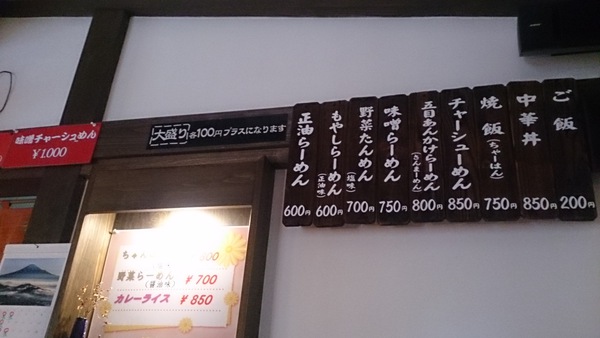 味噌チャーシュめん
¥1.000
大盛り 各100円プラスになります
正油らーめん 600円
もやしらーめん (正油味) 600円
野菜たんめん (塩味) 700円
味噌らーめん 750円
五目あんかけらーめん (さんまーめん) 800円
チャーシューめん 850円
焼飯 (ちゃーはん) 750円
中華丼 850円
ご飯 200円
野菜らーめん ¥700
(醤油味)
カレーライス ¥850